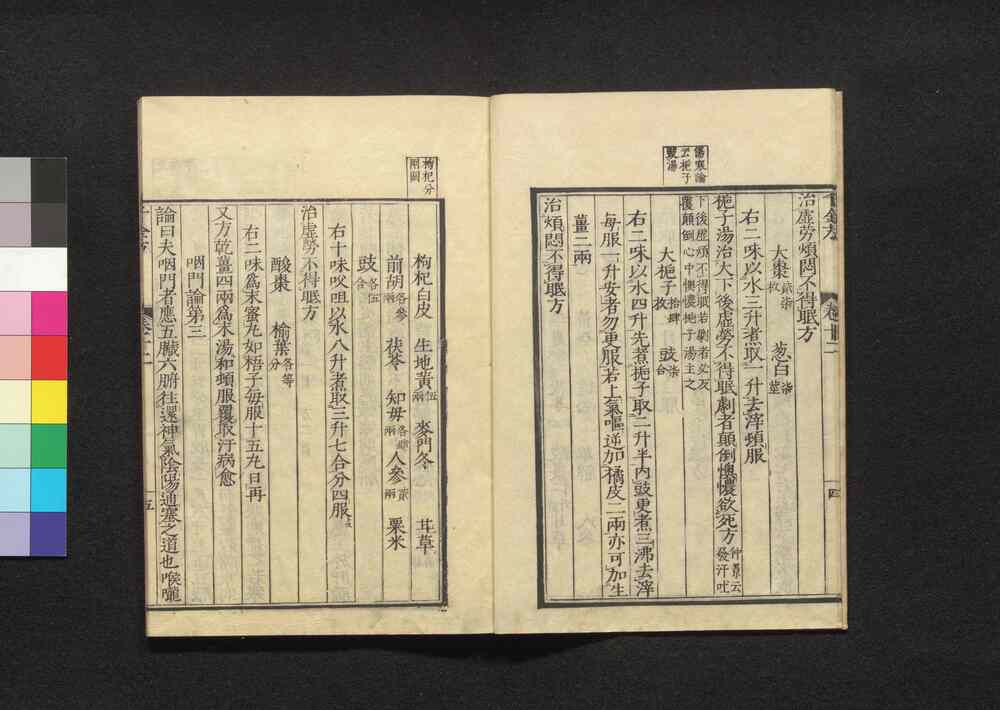 傷寒論
云梔子
豉湯
千金方 卷十二 四
治虛勞煩悶不得眠方
大棗貳柒枚 葱白柒莖
右二味以水三升煮取一升去滓頓服
梔子湯治大下後虛勞不得眠劇者顛倒懊憹欲死方仲景云發汗吐
下後虛煩不得眠若劇者必反
覆顛倒心中懊憹梔子湯主之
大梔子拾肆枚 豉柒合
右二味以水四升先煮梔子取二升半內豉更煮三沸去滓
每服一升安者勿更服若上氣嘔逆加橘皮二兩亦可加生
薑二兩
治煩悶不得眠方
枸杞分
兩闕
枸杞白皮 生地黃伍兩 麥門冬 甘草
前胡各參兩 茯苓 知母各肆兩 人參貳兩 粟米
豉各伍合
右十味㕮咀以水八升煮取三升七合分四服
治虛勞不得眠方
酸棗 榆葉各等分
右二味爲末蜜丸如梧子每服十五丸日再
又方乾薑四兩爲末湯和頓服覆取汗病愈
咽門論第三
論曰夫咽門者應五臟六腑往還神氣陰陽通塞之道也喉嚨
千金方 卷十二 五